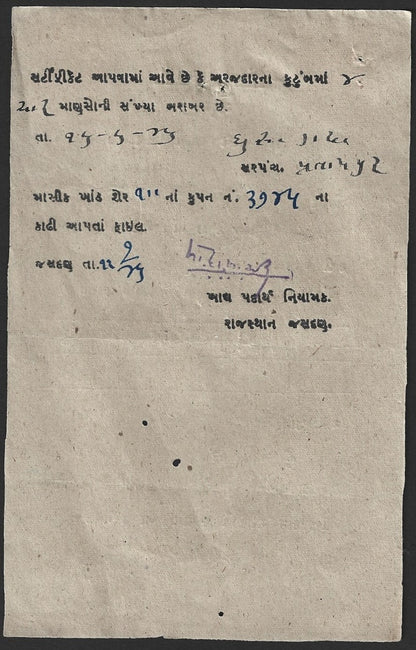 સર્ટીફીકેટ આપવામાં આવે છે કે અરજદારના કુટુંબમાં ૪
ચાર માણસોની સંખ્યા બરાબર છે.
તા.
સરપંચ. પ્રતાપપુર
માસીક ખાંડ શેર ૧ાા નાં કુપન નં. ૩૭૪૫ ના
કાઢી આપતાં ફાઇલ.
જસદણ તા.
ખાદ્ય પદાર્થ નિયામક.
રાજસ્થાન જસદણ.